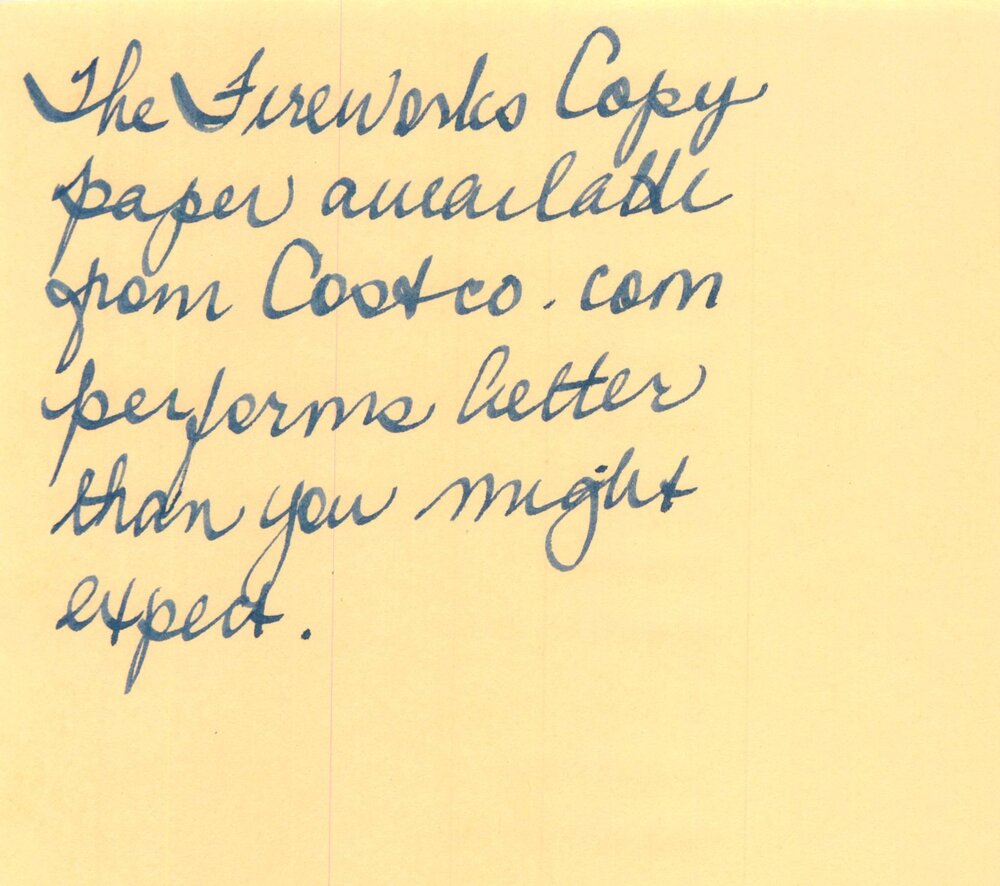 The Fireworks Copy
paper available
from Costco.com
performs better
than you might
expect.